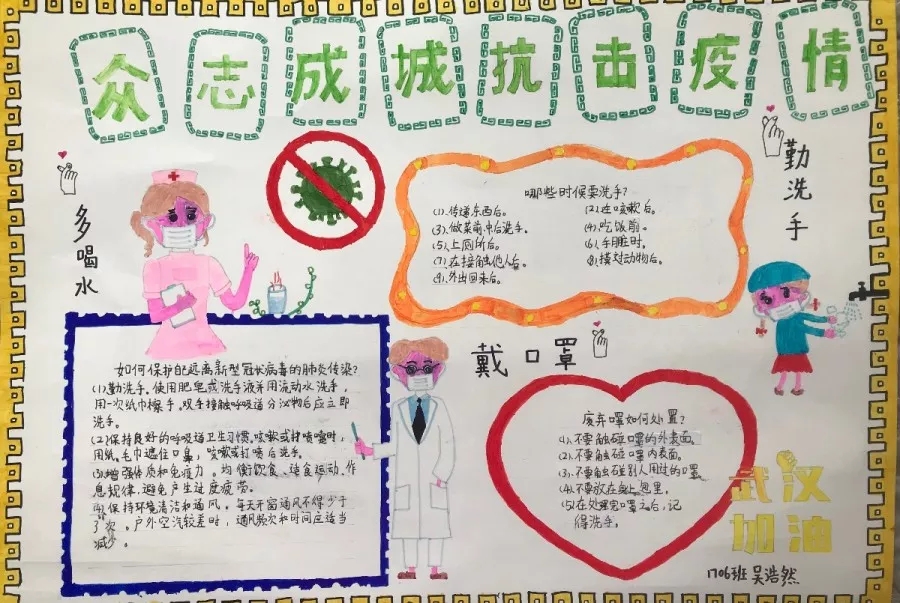 众志成城抗击疫情
多喝水
勤洗手
哪些时候要洗手?
(1).传递东西后。
(2).在咳嗽后。
(3).做菜前中后洗手。
(4).吃饭前。
(5).上厕所后。
(6).手脏时。
(7).在接触他人后。
(8).摸过动物后。
(9).外出回来后。
戴口罩
如何保护自己远离新型冠状病毒的肺炎传染?
(1)勤洗手。使用肥皂或洗手液并用流动水洗手,
用一次纸巾擦手。双手接触呼吸道分泌物后应立即
洗手。
(2)保持良好的呼吸道卫生习惯。咳嗽或打喷嚏时,
用纸、毛巾遮住口鼻,咳嗽或打喷后洗手。
(3)增强体质和免疫力。均衡饮食、适食运动、作
息规律,避免产生过度疲劳。
(4).保持环境清洁和通风。每天开窗通风不得少于
了次。户外空汽较差时,通风频次和时间应适当
减少。
废弃口罩如何处置?
(1).不要触碰口罩的外表面。
(2).不要触碰口罩内表面。
(3).不要触碰别人用过的口罩。
(4).不要放在包里。
(5)在处理完口罩之后,记
得洗手。
武汉
加油
1706班吴浩然